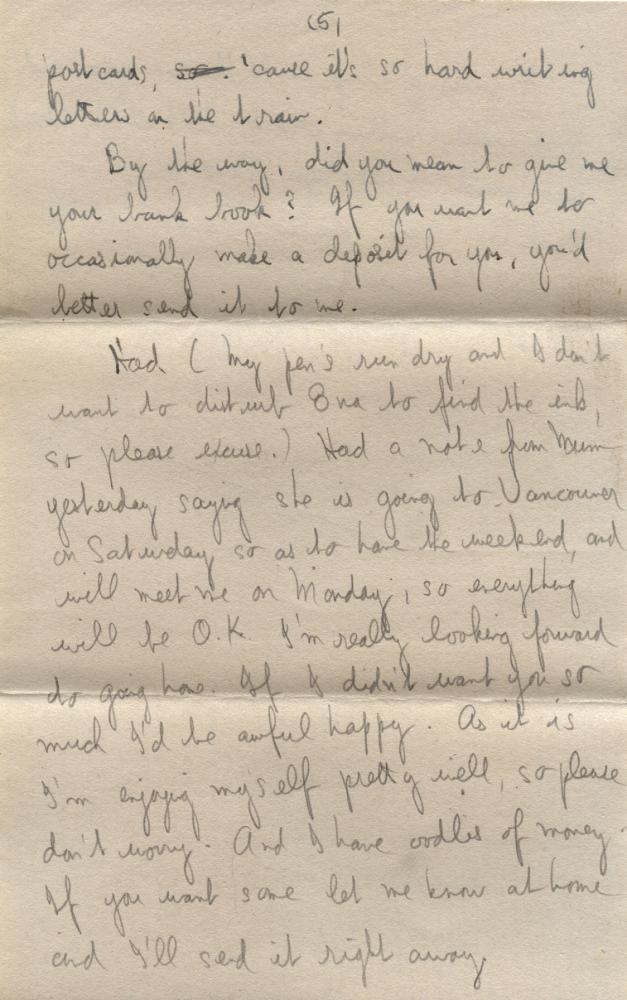 (5)
post cards, so. 'cause it's so hard writing
letters on the train.
By the way, did you mean to give me
your bank book? If you want me to
occasionally make a deposit for you, you'd
better send it to me.
Had (My pen's run dry and I don't
want to disturb Ena to find the ink,
so please excuse.) Had a note from Mum
yesterday saying she is going to Vancouver
on Saturday so as to have the weekend, and
will meet me on Monday, so everything
will be O.K. I'm really looking forward
to going home. If I didn't want you so
much I'd be awful happy. As it is
I'm enjoying myself pretty well, so please
don't worry. And I have oodles of money.
If you want some let me know at home
and I'll send it right away.